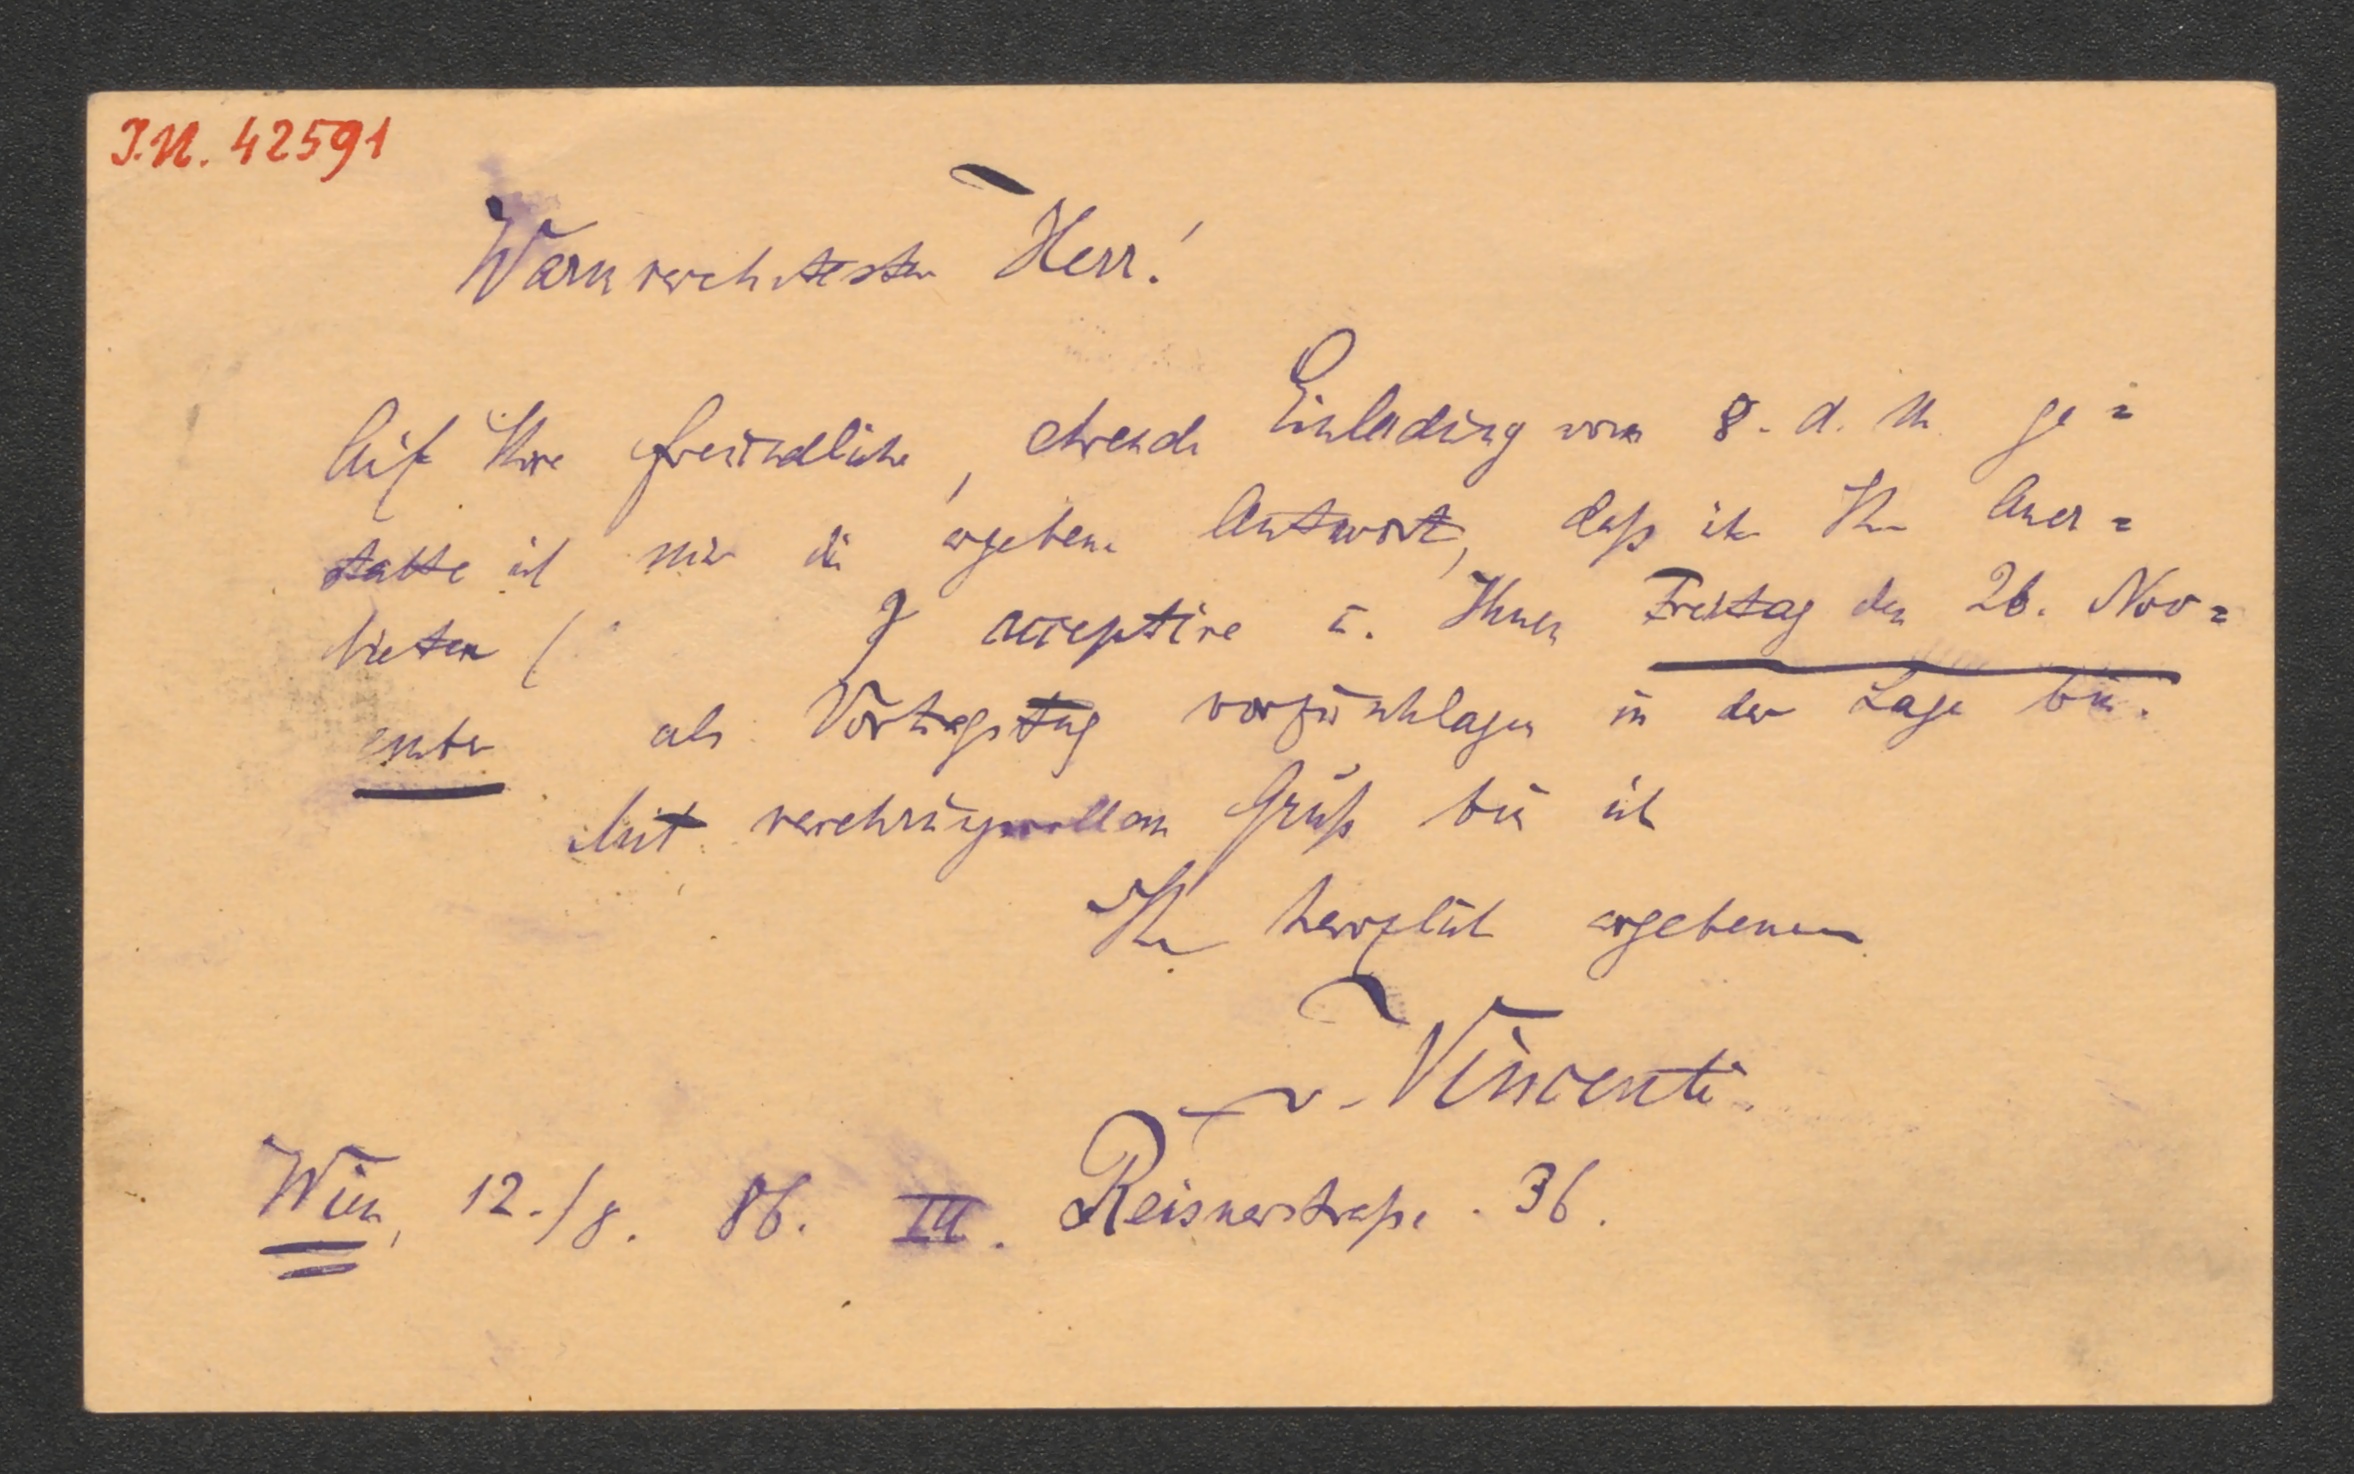 I.N. 42591
Warmverehrtester Herr!
Auf Ihre freundliche, ehrende Einladung vom 8. d. M ge=
statte ich mir die ergebene Antwort, daß ich Ihr Aner=
bieten ( acceptire u. Ihnen Freitag den 26. Nov=
ember als Vortragstag vorzuschlagen in der Lage bin.
Mit verehrungsvollem Gruß bin ich
Ihr herzlich ergebener
v. Vincenti.
Wien, 12./8. 86. III. Reisnerstraße. 36.